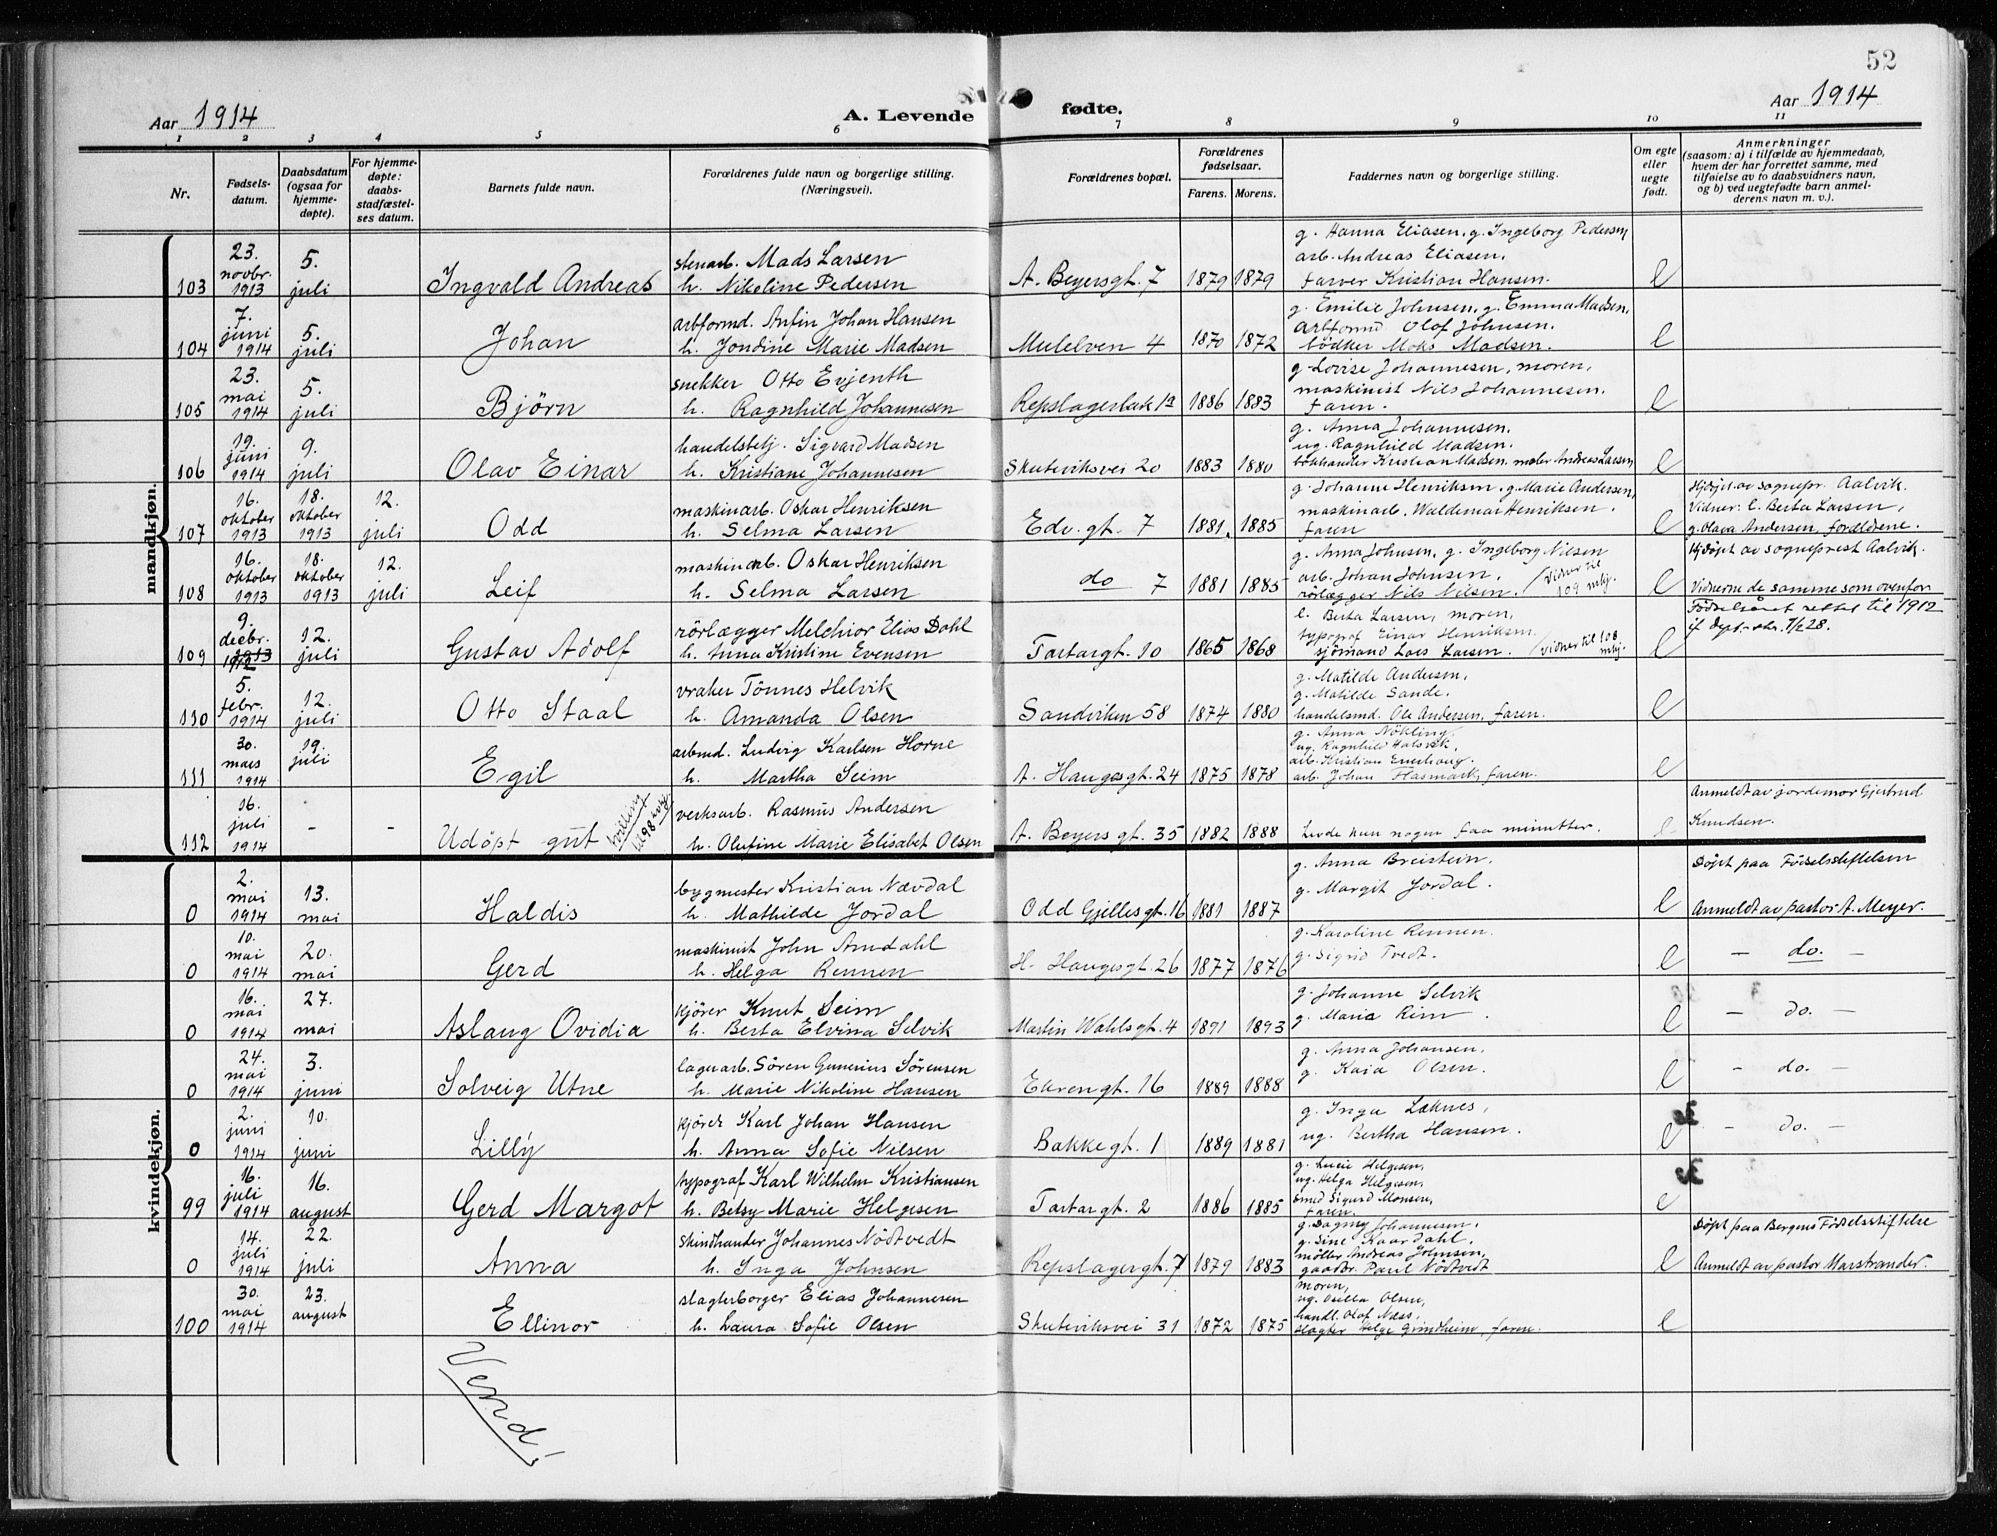 52
Aar 1914
A. Levende fødte.
Aar 1914
1 2 3 4 5 6 7 8 9 10 11
Nr.
Fødselsdatum.
Daabsdatum (ogsaa for hjemmedøpte).
For hjemmedøpte: daabsstadfæstelses datum.
Barnets fulde navn.
Forældrenes fulde navn og borgerlige stilling. (Næringsvei).
Forældrenes bopæl.
Forældrenes fødselsaar.
Farens. Morens.
Faddernes navn og borgerlige stilling.
Om egte eller uegte født.
Anmerkninger
(saasom: a) i tilfælde av hjemmedaab, hvem der har forrettet samme, med tilføielse av to daabsvidners navn, og b) ved uegtefødte barn anmelderens navn m. v.).
mandkjøn.
103 23. novbr. 1913 5. juli Ingvald Andreas
stenarb. Mads Larsen
h. Nikoline Pedersen
A. Beyersgt. 7 1879 1879
g. Hanna Eliasen, g. Ingeborg Pedersen
arb. Andreas Eliasen.
farver Kristian Hansen. e
104 7. juni 1914 5. juli Johan
arbformd. Anfin Johan Hansen
h. Jondine Marie Madsen
Mulelven 4 1870 1872
g. Emilie Johnsen, g. Emma Madsen,
arbformd Olof Johnsen.
bødker Moks Madsen. e
105 23. mai 1914 5. juli Bjørn
snekker Otto Evjenth
h. Ragnhild Johannesen
Repslagerbak 1a 1886 1883
g. Lovise Johannesen, moren,
maskinist Nils Johannesen.
faren. e
106 19. juni 1914 9. juli Olav Einar
handelsbetj. Sigvard Madsen
h. Kristiane Johannesen
Skuteviksvei 20 1883 1880
g. Anna Johannesen.
ug. Ragnhild Madsen.
bokhandler Kristian Madsen. maler Andreas Larsen e
107 16. oktober 1913 18. oktober 1913 12. juli Odd
maskinarb. Oskar Henriksen
h. Selma Larsen
Edv. gt. 7 1881. 1885
g. Johanne Henriksen, g. Marie Andersen,
maskinarb. Waldemar Henriksen.
faren e
Hjdøpt av sognepr. Aalvik.
Vidner: e. Berta Larsen,
g. Olava Andersen, forældrene.
108 16. oktober 1913 18. oktober 1913 12. juli Leif
maskinarb. Oskar Henriksen
h. Selma Larsen
do 7 1881 1885
g. Anna Johnsen, g. Ingeborg Nilsen
arb. Johan Johnsen,
rørlægger Nils Nilsen. (vidner til 109 mkj. e
Hjdøpt av sogneprest Aalvik.
Vidnerne de samme som ovenfor
109 9. decbr. 1913 1912 12. juli Gustav Adolf
rørlægger Melchior Elias Dahl
h. Anna Kristine Evensen
Tartargt. 10 1865 1868
e. Berta Larsen, moren,
typograf Einar Henriksen
sjømand Lars Larsen. (vidner til 108 mkj. e
Fødselsåret rettet til 1912
jf dept.-skr. 7/2 28.
110 5. febr. 1914 12. juli Otto Staal
vraker Tönnes Helvik
h. Amanda Olsen
Sandviken 58 1874 1880
g. Matilde Andersen,
g. Matilde Sande.
handelsmd. Ole Andersen, faren. e
111 30. mars 1914 19. juli Egil
arbmd. Ludvig Karlsen Horne
h. Martha Seim
A. Haugesgt. 24 1875 1878
g. Anna Nökling.
ug. Ragnhild Halsvik,
arb. Kristian Enerhaug.
arb. Johan Flasmark, faren. e
112 16. juli 1914 - - Udöpt gut tvilling til 98 kvkj.
verksarb. Rasmus Andersen
h. Olufine Marie Elisabet Olsen
A. Beyers gt. 35 1882 1888 Levde kun nogen faa minutter. e
Anmeldt av jordemor Gjertrud
Knudsen.
kvindekjøn.
0 2. mai 1914 13. mai Haldis
bygmester Kristian Nævdal
h. Mathilde Jordal
Odd Gjelles gt. 16 1881 1887
g. Anna Breistein.
g. Margit Jordal. e
Döpt paa Födselsstiftelsen
Anmeldt av pastor A. Meyer.
0 10. mai 1914 20. mai Gerd
maskinist John Amdahl
h. Helga Rennen
H. Haugesgt. 26 1877 1876
g. Karoline Rennen.
g. Sigrid Tvedt. e
- do. -
0 16. mai 1914 27. mai Aslaug Ovidia
kjører Knut Seim
h. Berta Elvina Selvik
Martin Wahlsgt. 4 1891 1893
g. Johanne Selvik
g. Maria Rim. e
- do. -
0 24. mai 1914 3. juni Solveig Utne
lagerarb. Sören Gunerius Sörensen
h. Marie Nikoline Hansen
Ekrengt. 16 1889 1888
g. Anna Johansen.
g. Kaia Olsen. e
- do. -
0 2. juni 1914 10. juni Lilly
kjörer Karl Johan Hansen
h. Anna Sofie Nilsen
Bakkegt. 1 1889 1881
g. Inga Laknes,
ug. Bertha Hansen. e
- do. -
99 16. juli 1914 16. august Gerd Margot
typograf Karl Wilhelm Kristiansen
h. Betsy Marie Helgesen
Tartargt. 2 1886 1885
g. Lucie Helgesen,
ug. Helga Helgesen,
smed Sigurd Monsen,
faren. e
0 14. juli 1914 22. juli Anna
skindhandler Johannes Nödtvedt
h. Inga Johnsen
Repslagergt. 7 1879 1883
g. Dagny Johannesen.
g. Sine Kaardahl.
møller Andreas Johnsen,
gaadbr. Paul Nödtvedt e
Döpt paa Bergens Födselsstiftelse
Anmeldt av pastor Marstrander.
100 30. mai 1914 23. august Ellinor
slagterborger Elias Johannesen
h. Laura Sofie Olsen
Skuteviksvei 31 1872 1875
moren,
ug. Osilla Olsen,
handl. Olaf Næss,
slagter Helge Grindheim, faren. e
Vend!